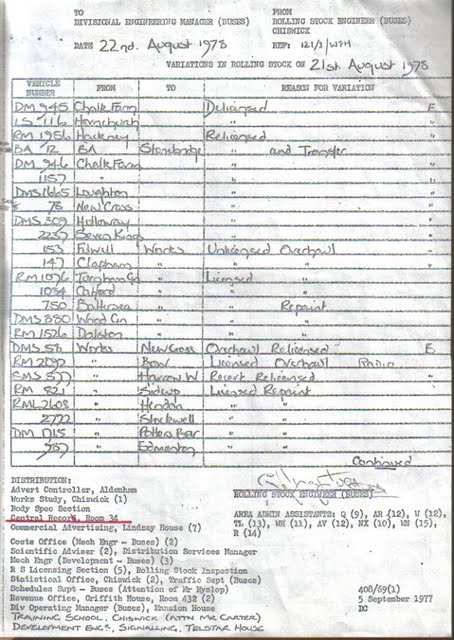 TO FROM
DIVISIONAL ENGINEERING MANAGER (BUSES) ROLLING STOCK ENGINEER (BUSES)
CHISWICK
DATE 22nd. August 1978 REF: 121/1/WPH
VARIATIONS IN ROLLING STOCK ON 21st. August 1978
VEHICLE NUMBER FROM TO REASON FOR VARIATION
DM 945 Chalk Farm Delicensed E
LS 116 Hornchurch " "
RM 1956 Hackney Relicensed
BA 12 BA Stonebridge " and Transfer
DM 946 Chalk Farm "
1157 " " "
DMS 1665 Loughton " "
78 New Cross " "
DMS 309 Holloway " "
2237 Seven Kings " "
153 Fulwell Works Unlicensed Overhaul
147 Clapham " " " "
RM 1076 Turnham Gn " Licensed
1034 Catford " " "
750 Battersea " " Repaint
DMS 880 Wood Gn " " "
RM 1526 Dalston " " "
DMS 56 Works New Cross Overhaul Relicensed E
RM " Bow Licensed Overhaul
SMS " Harrow W Recert Relicensed
RM 821 " Sidcup Licensed Repaint
RML 2608 " Hendon " "
2772 " Stockwell " "
DM 1715 " Potters Bar " "
967 " Edmonton " "
Continued
DISTRIBUTION:
Advert Controller, Aldenham
Works Study, Chiswick (1) ROLLING STOCK ENGINEER (BUSES)
Body Spec Section
Central Record, Room 34 AREA ADMIN ASSISTANTS: Q (9), AR (12), W (12),
Commercial Advertising, Lindsay House (7) TL (13), WH (11), AV (12), NX (10), MN (15),
R (14)
Costs Office (Mech Engr - Buses) (2)
Scientific Adviser (2), Distribution Services Manager
Mech Engr (Development - Buses) (3)
R S Licensing Section (5), Rolling Stock Inspection
Statistical Office, Chiswick (2), Traffic Supt (Buses)
Schedules Supt - Buses (Attention of Mr Hyslop) 408/69(1)
Revenue Office, Griffith House, Room 432 (2) 5 September 1977
Div Operating Manager (Buses), Mansion House DC
TRAINING SCHOOL, CHISWICK (ATTN MR CARTER)
DEVELOPMENT ENGR. SIGNALLING, TELSTAR HOUSE